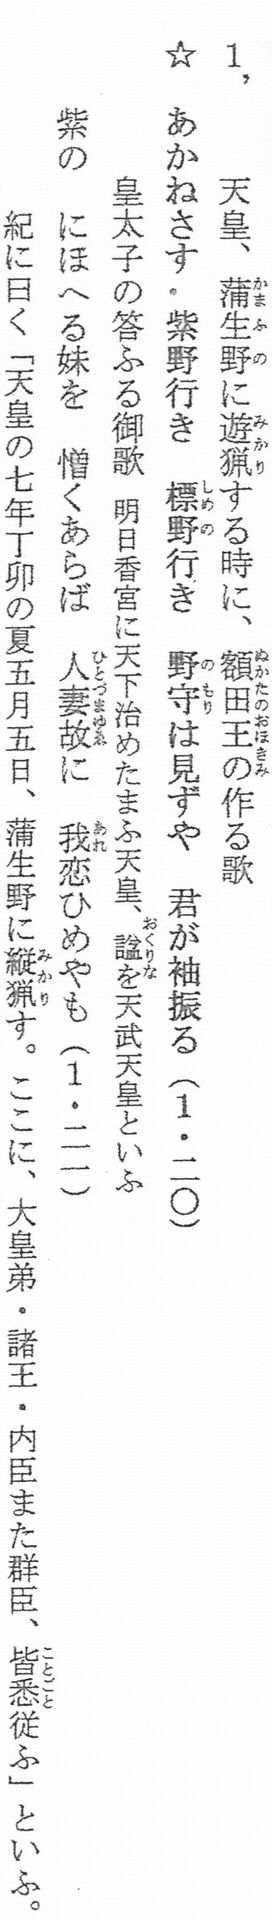 1, 天皇、蒲生野に遊猟する時に、額田王の作る歌
☆ あかねさす 紫野行き 標野行き 野守は見ずや 君が袖振る（1・二〇）
皇太子の答ふる御歌 明日香宮に天下治めたまふ天皇、諡を天武天皇といふ
紫の にほへる妹を 憎くあらば 人妻故に 我恋ひめやも（1・二一）
紀に曰く「天皇の七年丁卯の夏五月五日、蒲生野に縦猟す。ここに、大皇弟・諸王・内臣また群臣、皆悉従ふ」といふ。